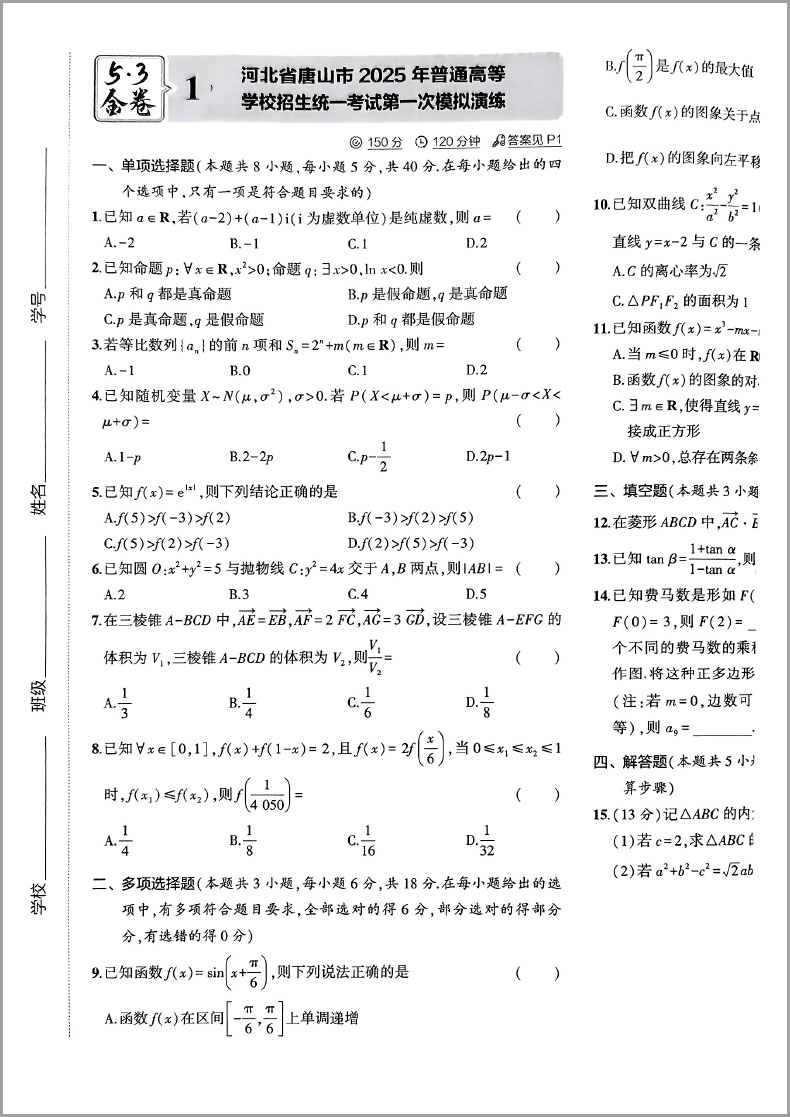 5·3
金卷
1
河北省唐山市 2025 年普通高等
学校招生统一考试第一次模拟演练
150 分 120 分钟 答案见 P1
一、单项选择题(本题共 8 小题,每小题 5 分,共 40 分.在每小题给出的四
个选项中,只有一项是符合题目要求的)
1.已知 a∈R,若(a-2)+(a-1)i(i 为虚数单位)是纯虚数,则 a= ( )
A.-2 B.-1 C.1 D.2
2.已知命题 p:∀x∈R,x²>0;命题 q:∃x>0,ln x<0.则 ( )
A.p 和 q 都是真命题 B.p 是假命题,q 是真命题
C.p 是真命题,q 是假命题 D.p 和 q 都是假命题
3.若等比数列{aₙ}的前 n 项和 Sₙ=2ⁿ+m(m∈R),则 m= ( )
A.-1 B.0 C.1 D.2
4.已知随机变量 X~N(μ,σ²),σ>0.若 P(X<μ+σ)=p,则 P(μ-σ<X<
μ+σ)= ( )
A.1-p B.2-2p C.p-1/2 D.2p-1
5.已知 f(x)=e^|x|,则下列结论正确的是 ( )
A.f(5)>f(-3)>f(2) B.f(-3)>f(2)>f(5)
C.f(5)>f(2)>f(-3) D.f(2)>f(5)>f(-3)
6.已知圆 O:x²+y²=5 与抛物线 C:y²=4x 交于 A,B 两点,则|AB|= ( )
A.2 B.3 C.4 D.5
7.在三棱锥 A-BCD 中,AE→=EB→,AF→=2 FC→,AG→=3 GD→,设三棱锥 A-EFG 的
体积为 V₁,三棱锥 A-BCD 的体积为 V₂,则 V₁/V₂= ( )
A.1/3 B.1/4 C.1/6 D.1/8
8.已知∀x∈[0,1],f(x)+f(1-x)=2,且 f(x)=2f(x/6),当 0≤x₁≤x₂≤1
时,f(x₁)≤f(x₂),则 f(1/4 050)= ( )
A.1/4 B.1/8 C.1/16 D.1/32
二、多项选择题(本题共 3 小题,每小题 6 分,共 18 分.在每小题给出的选
项中,有多项符合题目要求,全部选对的得 6 分,部分选对的得部分
分,有选错的得 0 分)
9.已知函数 f(x)=sin(x+π/6),则下列说法正确的是 ( )
A.函数 f(x)在区间[-π/6,π/6]上单调递增
B.f(π/2)是 f(x)的最大值
C.函数 f(x)的图象关于点
D.把 f(x)的图象向左平移
10.已知双曲线 C:x²/a²-y²/b²=1(
直线 y=x-2 与 C 的一条
A.C 的离心率为√2
C.△PF₁F₂ 的面积为 1
11.已知函数 f(x)=x³-mx-
A.当 m≤0 时,f(x)在 R
B.函数 f(x)的图象的对
C.∃m∈R,使得直线 y=
接成正方形
D.∀m>0,总存在两条斜
三、填空题(本题共 3 小题
12.在菱形 ABCD 中,AC→·
13.已知 tan β=(1+tan α)/(1-tan α),则
14.已知费马数是形如 F(
F(0)=3,则 F(2)=
个不同的费马数的乘积
作图.将这种正多边形
(注:若 m=0,边数可
等),则 a₉=______.
四、解答题(本题共 5 小
算步骤)
15.(13 分)记△ABC 的内
(1)若 c=2,求△ABC
(2)若 a²+b²-c²=√2ab
学号
姓名
班级
学校